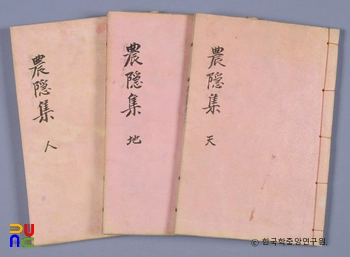 農隱集
天
農隱集
地
農隱集
人
ⓒ 한국학중앙연구원